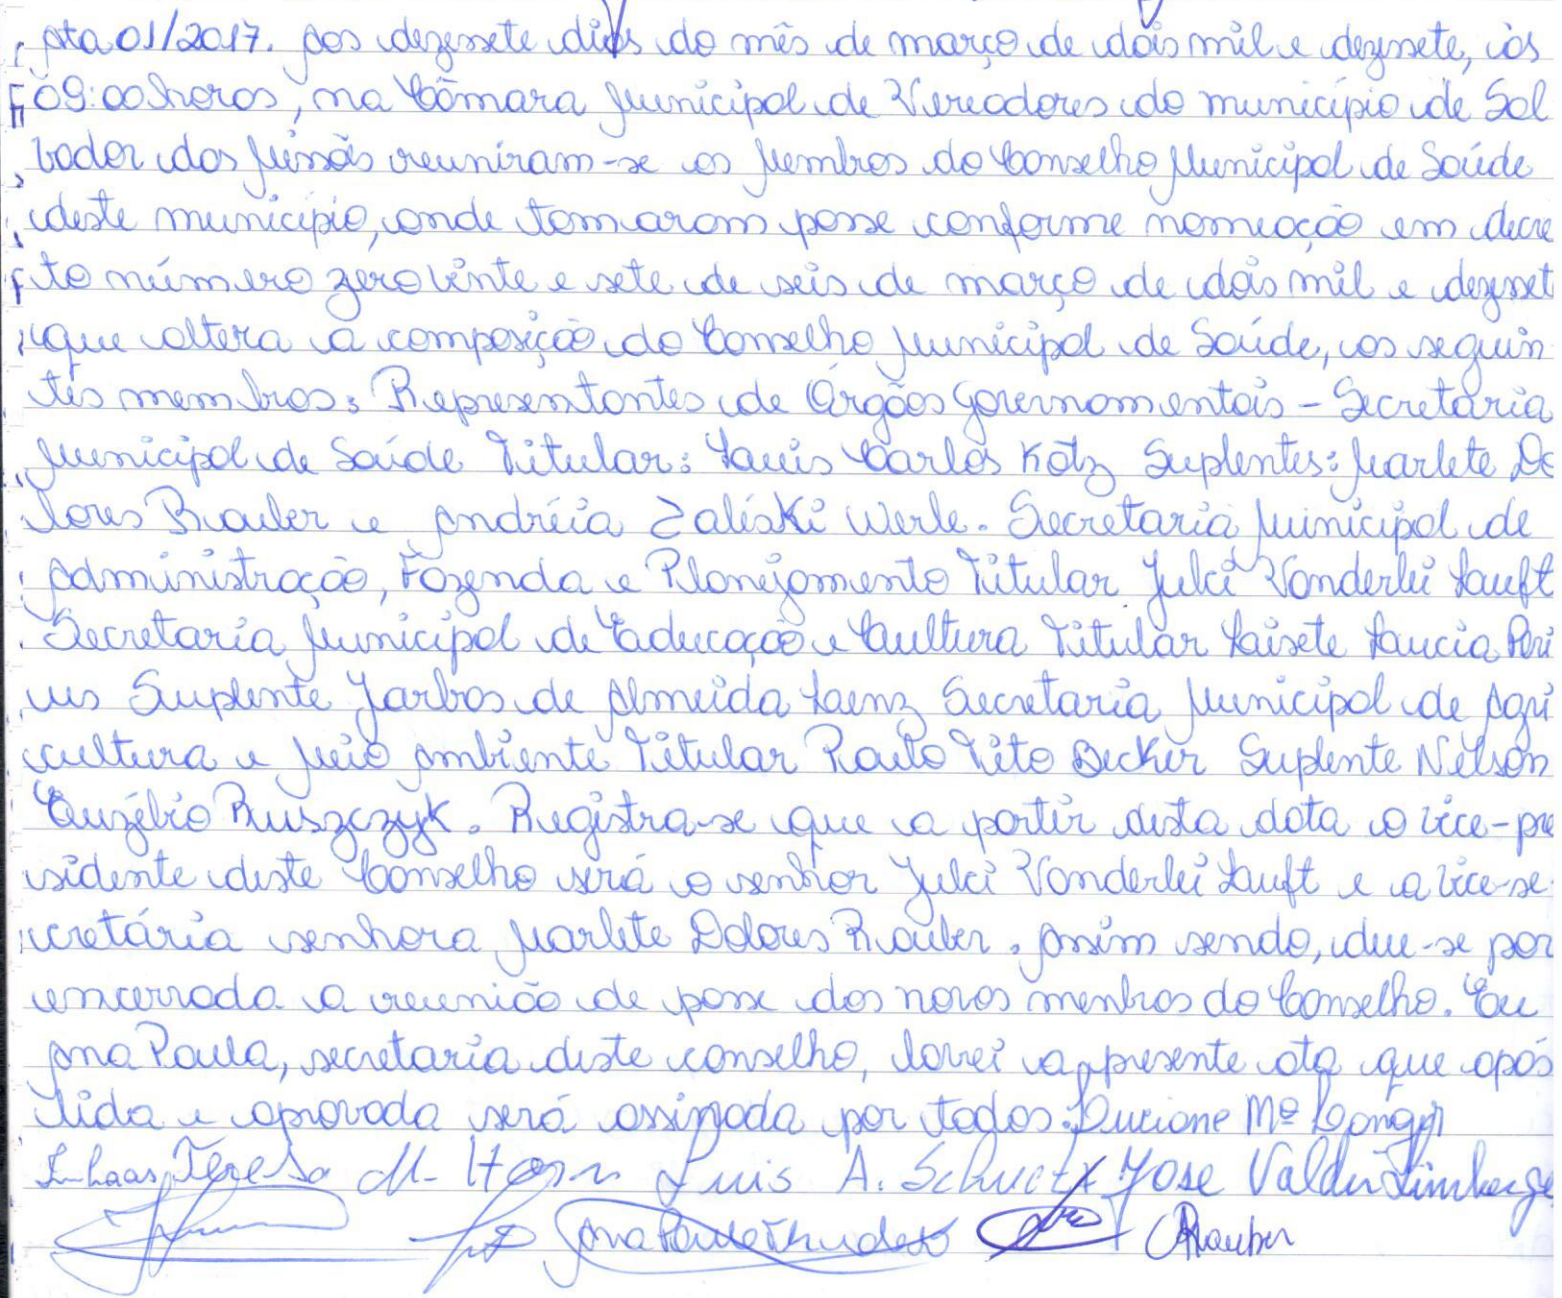 Ata 01/2017. Aos dezessete dias do mês de março de dois mil e dezessete, às
09:00horas, na Câmara Municipal de Vereadores do município de Sal
vador das Missões reuniram-se os Membros do Conselho Municipal de Saúde
deste município, onde tomaram posse conforme nomeação em decre
to número zero vinte e sete de seis de março de dois mil e dezesset
que altera a composição do Conselho Municipal de Saúde, os seguin
tes membros: Representantes de Órgãos Governamentais - Secretaria
Municipal de Saúde Titular: Luis Carlos Kotz Suplentes: Marlete Do
lores Rauber e Andréia Zaliski Werle. Secretaria Municipal de
Administração, Fazenda e Planejamento Titular Julci Vanderlei Lauft
Secretaria Municipal de Educação e Cultura Titular Laisete Lucia Peri
us Suplente Jarbas de Almeida Lenz Secretaria Municipal de Agri
cultura e Meio Ambiente Titular Paulo Tito Becker Suplente Nelson
Euzébio Ruszczyk. Registra-se que a partir desta data o vice-pre
sidente deste Conselho será o senhor Julci Vanderlei Lauft e a vice-se
cretária senhora Marlete Dolores Rauber. Assim sendo, deu-se por
encerrada a reunião de posse dos novos membros do Conselho. Eu
Ana Paula, secretaria deste conselho, lavrei a presente ata que após
lida e aprovada será assinada por todos: Luciane Mª
Teresa M. Horn Luis A. Schuetz Jose Valdir Limberge
Ana Paula Rauber